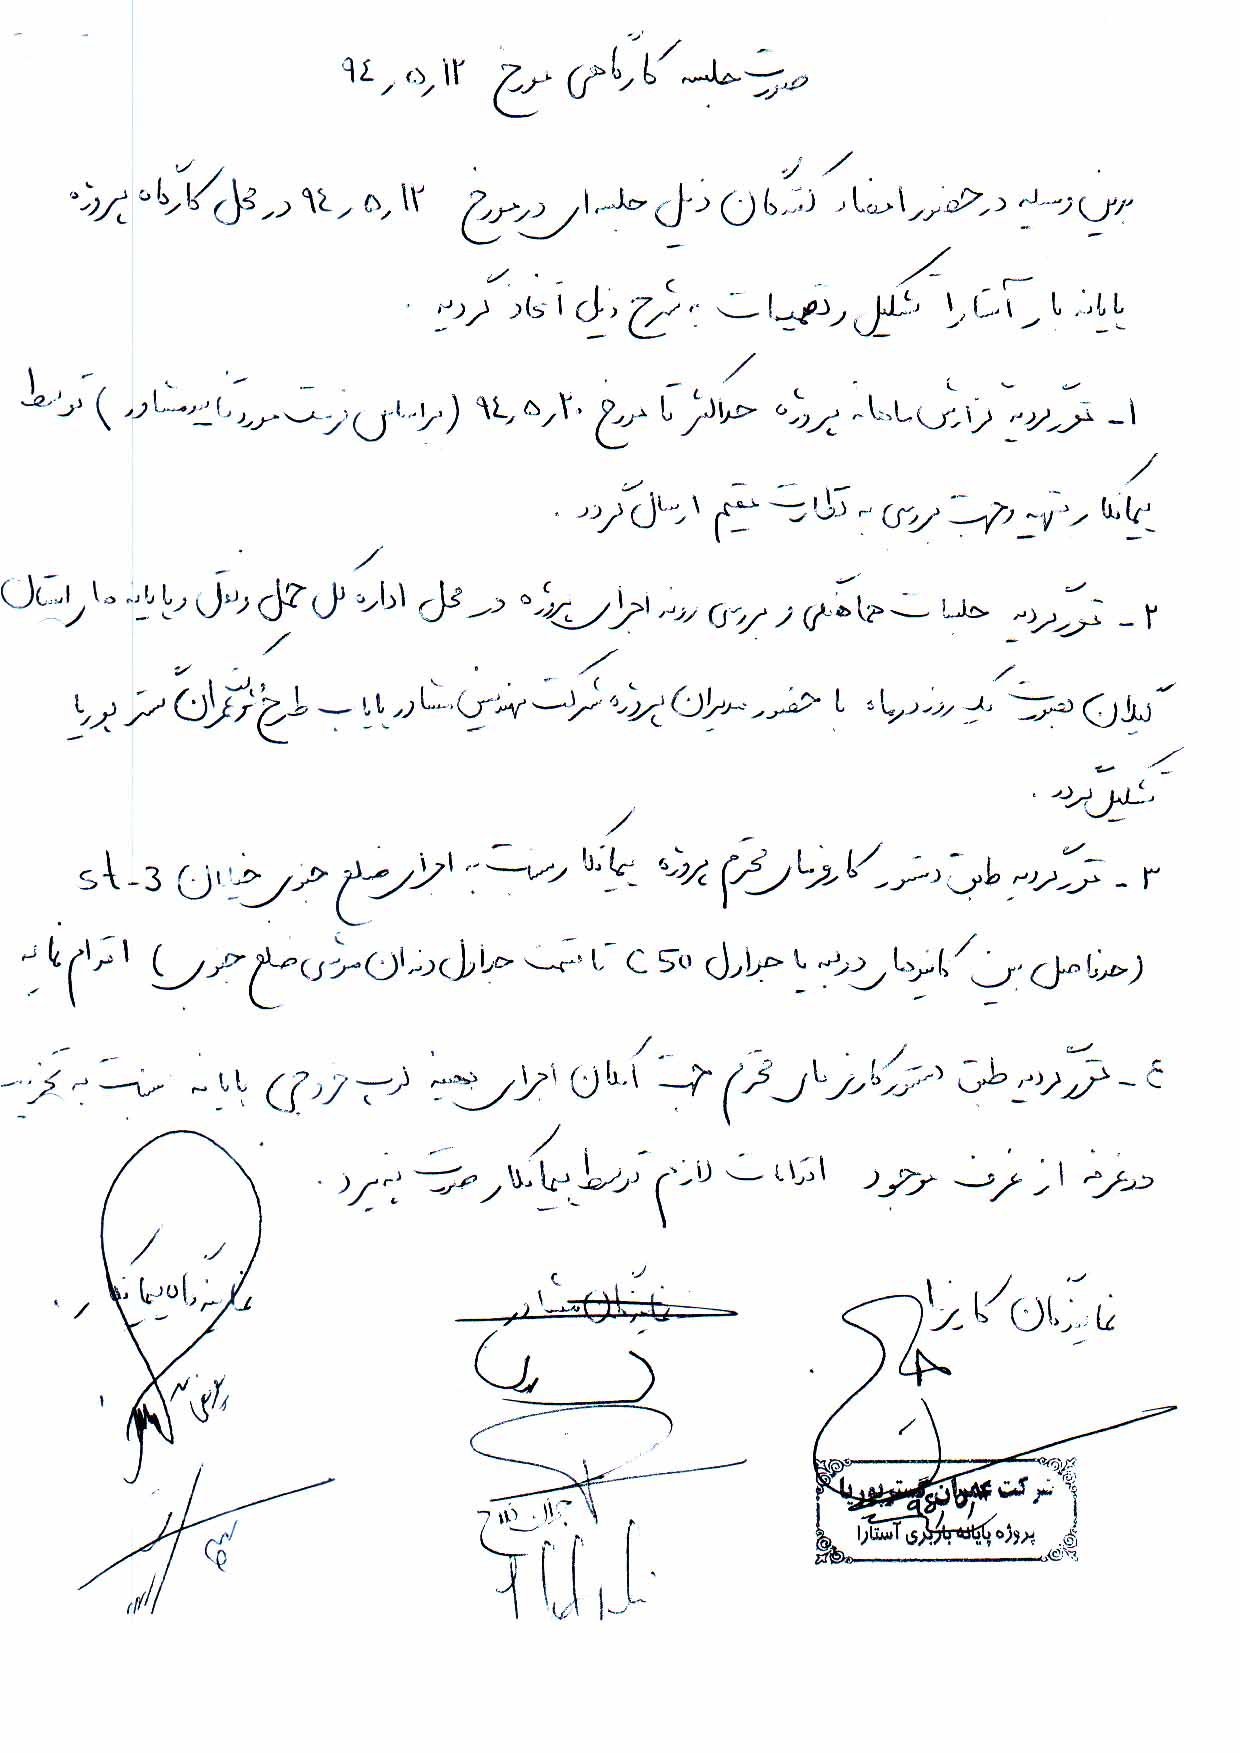 صورت جلسه کارگاهی مورخ ۹۴٫۵٫۱۲
بدین وسیله در حضور امضاء کنندگان ذیل جلسه ای در مورخ ۹۴٫۵٫۱۲ در محل کارگاه پروژه
پایانه بار آستارا تشکیل و تصمیمات به شرح ذیل اتخاذ گردید .
۱ـ مقرر گردید گزارش ماهانه پروژه حداکثر تا مورخ ۹۴٫۵٫۲۰ (براساس فرمت مورد تایید مشاور) توسط
پیمانکار تهیه و جهت بررسی به نظارت مقیم ارسال گردد .
۲ـ مقرر گردید جلسات هماهنگی و بررسی روند اجرای پروژه در محل اداره کل حمل و نقل و پایانه های استان
گیلان بصورت یک روز در ماه با حضور مدیران پروژه شرکت مهندسین مشاور پایاب طرح نو و عمران گستر پوریا
تشکیل گردد .
۳ـ مقرر گردید طبق دستور کارفرمای محترم پروژه پیمانکار نسبت به اجرای ضلع جنوبی خیابان st-3
(حدفاصل بین کانیوهای درجه یا جداول C50 تا قسمت جداول دندان موشی ضلع جنوبی) اقدام نماید
۴ـ مقرر گردید طبق دستور کارفرمای محترم جهت امکان اجرای بهینه درب خروجی پایانه نسبت به تخریب
دو غرفه از غرف موجود اقدامات لازم توسط پیمانکار صورت پذیرد .
نمایندگان کارفرما
نمایندگان مشاور
نمایندگان پیمانکار .
شرکت عمران گستر پوریا
پروژه پایانه باربری آستارا